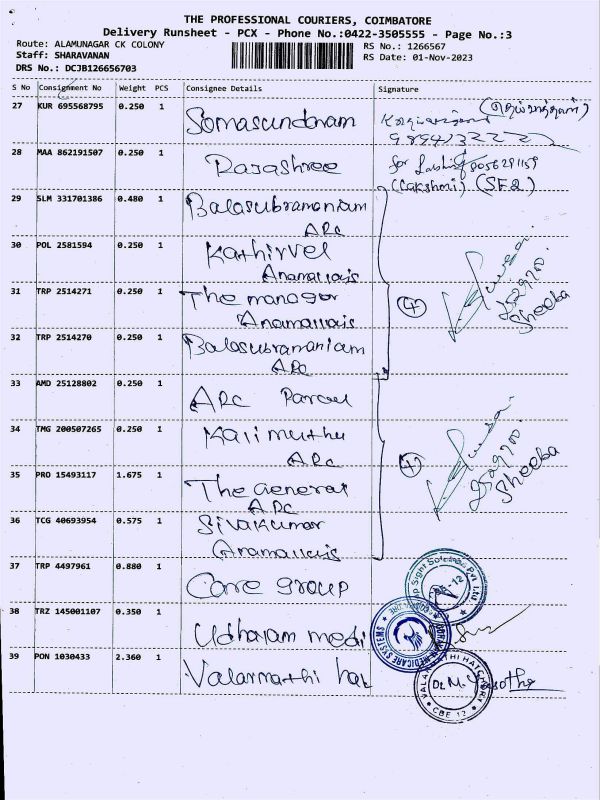 THE PROFESSIONAL COURIERS, COIMBATORE
Delivery Runsheet - PCX - Phone No.:0422-3505555 - Page No.:3
Route: ALAMUNAGAR CK COLONY
RS No.: 1266567
Staff: SHARAVANAN
RS Date: 01-Nov-2023
DRS No.: DCJB126656703
S No Consignment No Weight PCS Consignee Details Signature
27 KUR 695568795 0.250 1 Somasundaram
28 MAA 862191507 0.250 1 Rajashree
for Lakshmi 8056291159
(Lakshmi) (SF2)
29 SLM 331701386 0.480 1 Balasubramaniam
ARC
30 POL 2581594 0.250 1 Kathirvel
Anamallais
31 TRP 2514271 0.250 1 The manager
Anamallais
④
Sheeba
32 TRP 2514270 0.250 1 Balasubramaniam
ARC
33 AMD 25128802 0.250 1 ARC Parcel
34 TMG 200507265 0.250 1 Kalimuthu
ARC
④
Sheeba
35 PRO 15493117 1.675 1 The General
ARC
36 TCG 40693954 0.575 1 Sivakumar
Anamallais
37 TRP 4497961 0.880 1 Care group
38 TRZ 145001107 0.350 1 Udhayam medi
39 PON 1030433 2.360 1 Valarmathi hat
VALARMATHI HATCHERY
CBE 12